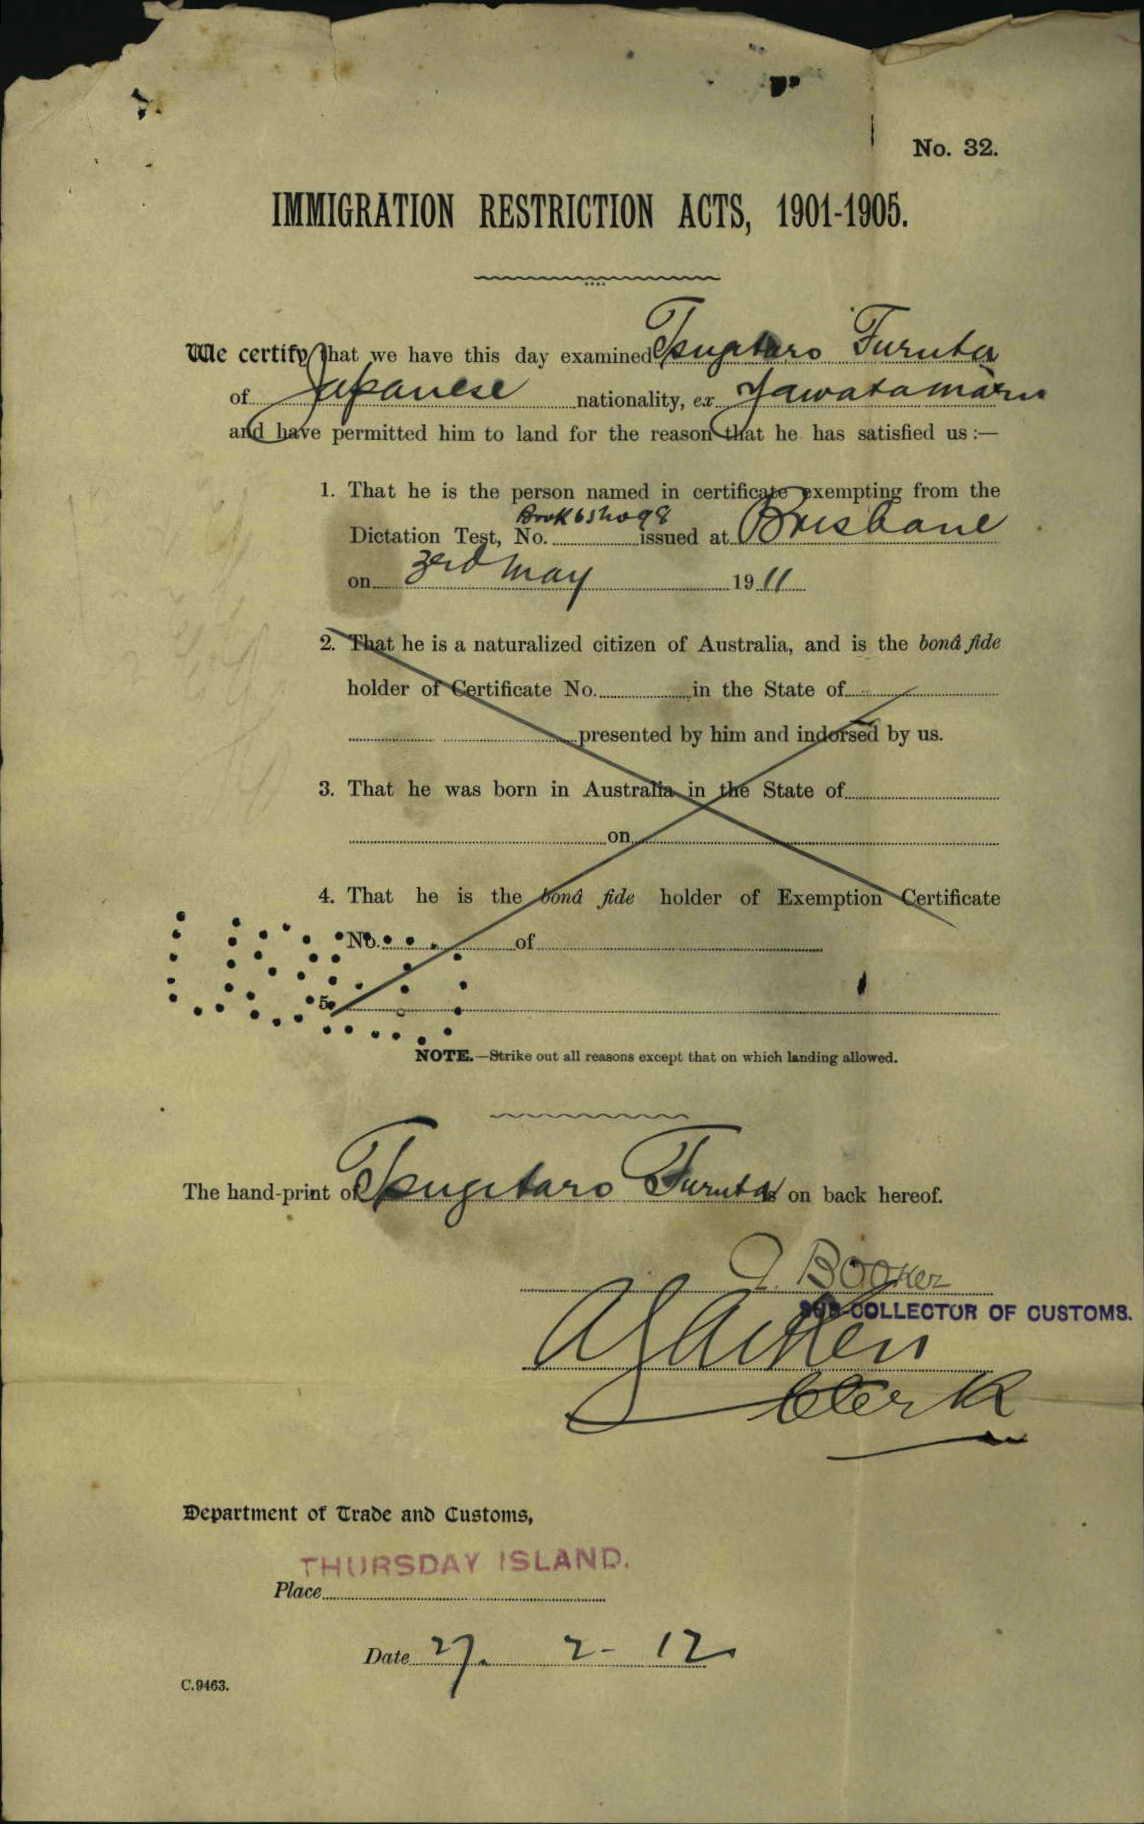 No. 32.
IMMIGRATION RESTRICTION ACTS, 1901-1905.
We certify that we have this day examined Tsugitaro Furuta
of Japanese nationality, ex Yawata maru
and have permitted him to land for the reason that he has satisfied us :—
1. That he is the person named in certificate exempting from the
Book 63 No 98
Dictation Test, No. issued at Brisbane
on 3rd May 1911
2. That he is a naturalized citizen of Australia, and is the bonâ fide
holder of Certificate No. in the State of
presented by him and indorsed by us.
3. That he was born in Australia in the State of
on
4. That he is the bonâ fide holder of Exemption Certificate
No. of
5.
NOTE.—Strike out all reasons except that on which landing allowed.
The hand-print of Tsugitaro Furuta is on back hereof.
Booker
SUB-COLLECTOR OF CUSTOMS.
Clerk
Department of Trade and Customs,
THURSDAY ISLAND.
Place
Date 27. 2 - 12
C.9463.